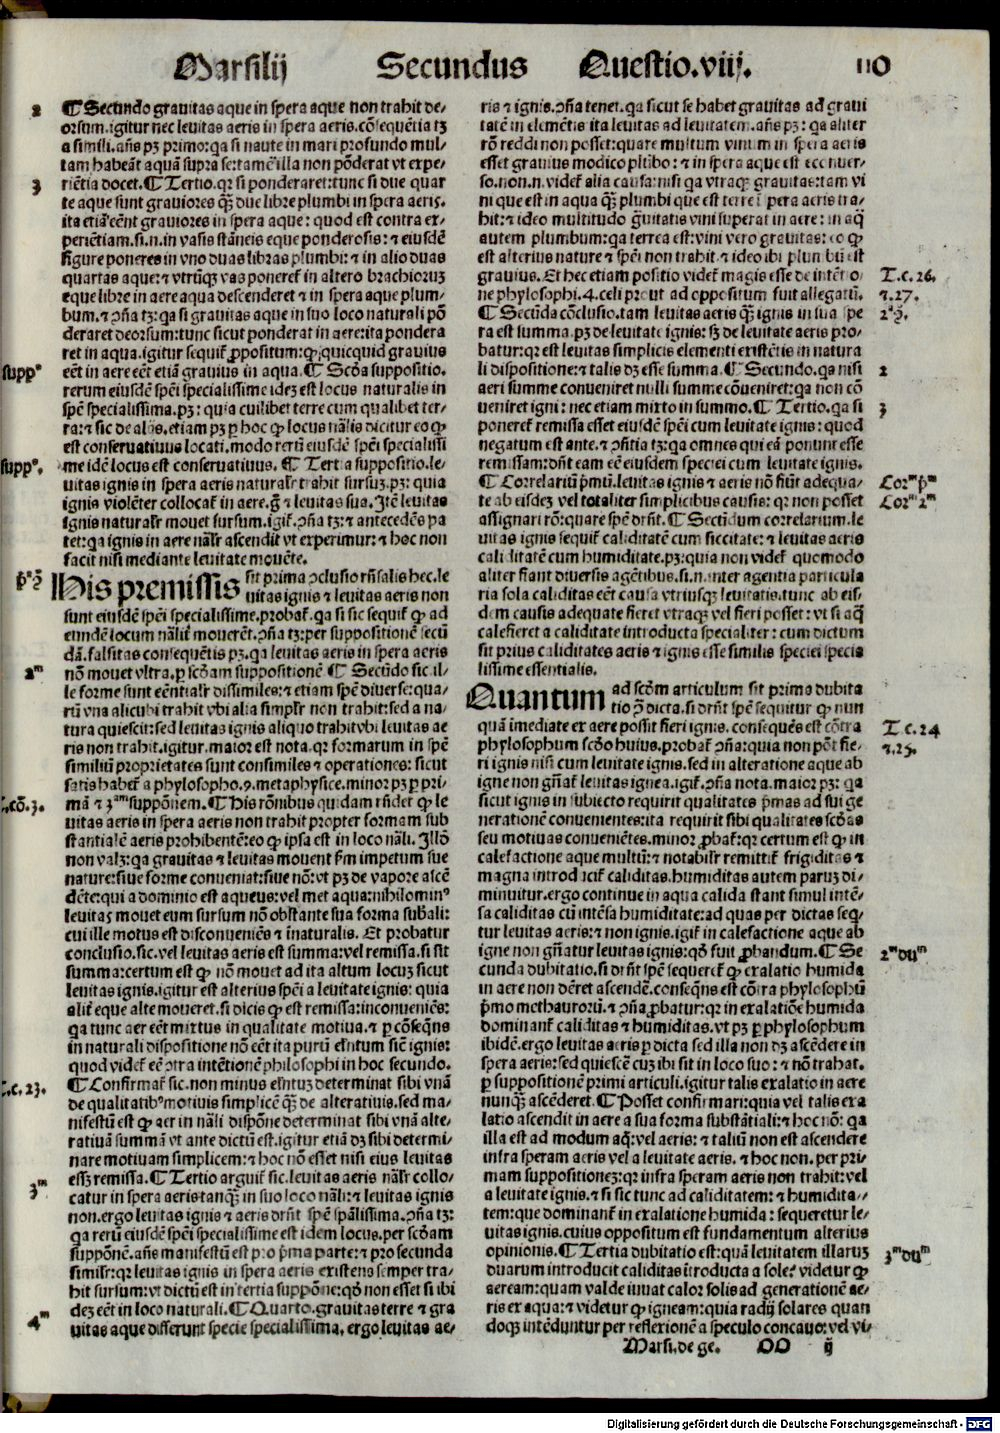 Marsilij Secundus Questio.viij. 110
2 ¶ Secundo grauitas aque in spera aque non trahit de/
orsum.igitur nec leuitas aeris in spera aeris.cōsequētia tꝫ
a simili.añs pꝫ primo:qꝛ si naute in mari profundo mul/
tam habeāt aquā supra se:tamē illa non pōderat vt expe/
3 riētia docet.¶ Tertio.qꝛ si ponderaret:tunc si due quar
te aque sunt grauiores qꝫ̄ due libre plumbi in spera aeris.
ita etiā eēnt grauiores in spera aque: quod est contra ex/
periētiam.si.n.in vasis stāneis eque ponderosis: ⁊ eiusdē
figure poneres in vno duas libras plumbi: ⁊ in alio duas
quartas aque: ⁊ vtrūqꝫ vas poneret̄ in altero brachiorum
eque libre in aere aqua descenderet ⁊ in spera aque plum/
bum. ⁊ ↄña tꝫ: qꝛ si grauitas aque in suo loco naturali pō
deraret deorsum:tunc sicut ponderat in aere:ita pondera
ret in aqua.igitur sequit̄ ꝓpositum: ꝙ quicquid grauius
supp°. eēt in aere eēt etiā grauius in aqua. ¶ Scd̄a suppositio.
rerum eiusdē spēi specialissime idez est locus naturalis in
spē specialissima.pꝫ: quia cuilibet terre cum qualibet ter/
ra: ⁊ sic de alijs.etiam pꝫ ꝑ hoc ꝙ locus nālis dicitur eo ꝙ
est conseruatiuus locati.modo rerū eiusdē spēi specialissi
supp°. me idē locus est conseruatiuus. ¶ Tertia suppositio.le/
uitas ignis in spera aeris naturalr̄ trahit sursuꝫ.pꝫ: quia
ignis violēter collocat̄ in aere.g̊ ⁊ leuitas sua.Itē leuitas
ignis naturalr̄ mouet sursum.igit̄.ↄña tꝫ: ⁊ antecedēs pa
tet:qꝛ ignis in aere nālr̄ ascendit vt experimur: ⁊ hoc non
facit nisi mediante leuitate mouēte.
His premissis sit prima ↄclusio rn̄salis hec.le
uitas ignis ⁊ leuitas aeris non
sunt eiusdē spēi specialissime.probat̄. qꝛ si sic sequit̄ ꝙ ad
eundē locum nālit̄ mouerēt.ↄña tꝫ:per suppositionē secū
dā.falsitas consequētis pꝫ.qꝛ leuitas aeris in spera aeris
2ᵐ nō mouet vltra.ꝑ scd̄am suppositionē ¶ Secūdo sic il/
le forme sunt eēntialr̄ dissimiles: ⁊ etiam spē diuerse:qua/
rū vna alicubi trahit vbi alia simplr̄ non trahit:sed a na/
tura quiescit:sed leuitas ignis aliquo trahit vbi leuitas ae
ris non trahit.igitur.maior est nota.qꝛ formarum in spē
similiū proprietates sunt consimiles ⁊ operationes: sicut
satis habet̄ a phylosopho.9.metaphysice.minor pꝫ ꝑ pri/
mā ⁊ 3ᵃᵐ suppōnem. ¶ His rōnibus quidam rn̄det ꝙ le
uitas aeris in spera aeris non trahit propter formam sub
stantialē aeris prohibentē:eo ꝙ ipsa est in loco nāli. Illḋ
non valꝫ: qꝛ grauitas ⁊ leuitas mouent fm̄ impetum sue
nature:siue forme conueniat:siue nō: vt pꝫ de vapore ascē
dēte:qui a dominio est aqueus:vel met aqua:nihilomin⁹
leuitas mouet eum sursum nō obstante sua forma subāli:
cui ille motus est disconueniēs ⁊ īnaturalis. Et probatur
conclusio.sic.vel leuitas aeris est summa:vel remissa.si sit
summa:certum est ꝙ nō mouet ad ita altum locuꝫ sicut
leuitas ignis.igitur est alterius spēi a leuitate ignis: quia
alit̄ eque alte moueret.si dicis ꝙ est remissa:inconueniēs:
qꝛ tunc aer eēt mixtus in qualitate motiua. ⁊ ꝑ cōseqn̄s
in naturali dispositione nō eēt ita purū eln̄tum siē ignis:
quod videt̄ eē ↄtra intētionē philosophi in hoc secundo.
¶ Confirmat̄ sic.non minus eln̄tuꝫ determinat sibi vnā
de qualitatib⁹ motiuis simplicē qꝫ̄ de alteratiuis.sed ma/
nifestū est ꝙ aer in nāli dispōne determinat sibi vnā alte/
ratiuā summā vt ante dictū est.igitur etiā dꝫ sibi determi/
nare motiuam simplicem: ⁊ hoc nō esset nisi eius leuitas
esset remissa. ¶ Tertio arguit̄ sic.leuitas aeris nālr̄ collo/
3ᵐ catur in spera aeris tanqꝫ̄ in suo loco nāli: ⁊ leuitas ignis
non.ergo leuitas ignis ⁊ aeris dr̄nt spē spālissima.ↄña tꝫ:
qꝛ rerū eiusdē spēi specialissime est idem locus.per scd̄am
suppōnē.añs manifestū est pro pͥma parte: ⁊ pro secunda
similr̄:qꝛ leuitas ignis in spera aeris existens semper tra/
hit sursum:vt dictū est in tertia suppōne:qḋ non esset si ibi
deꝫ eēt in loco naturali. ¶ Quarto.grauitas terre ⁊ gra
4ᵐ uitas aque differunt specie specialissima, ergo leuitas ae/
ris ⁊ ignis.ↄña tenet.qꝛ sicut se habet grauitas ad graui
tatē in elemētis ita leuitas ad leuitatem.añs pꝫ: qꝛ aliter
rō reddi non posset:quare multum vinum in spera aeris
esset grauius modico plūbo: ⁊ in spera aque est econuer/
so.non.n.videt̄ alia causa:nisi qꝛ vtraqꝫ grauitas:tam vi
ni que est in aqua qꝫ̄ plumbi que est terrei ī spera aeris tra/
hit: ⁊ ideo multitudo g̊uitatis vini superat in aere: in aq̄
autem plumbum:qꝛ terrea est:vini vero grauitas: eo ꝙ
est alterius nature ⁊ spēi non trahit. ⁊ ideo ibi plumbū est
grauius. Et hec etiam positio videt̄ magis esse de intētio/ T.c.26.
ne phylosophi.4.celi prout ad oppositum fuit allegatū. ⁊.27.
¶ Secūda cōclusio.tam leuitas aeris qꝫ̄ ignis in sua spe
ra est summa.pꝫ de leuitate ignis: sꝫ de leuitate aeris pro/
batur:qꝛ est leuitas simplicis elementi existētis in natura
li dispositione: ⁊ talis dꝫ esse summa. ¶ Secundo.qꝛ nisi 2
aeri summe conueniret nulli summe cōueniret:qꝛ non cō
ueniret igni: nec etiam mixto in summo. ¶ Tertio.qꝛ si 3
poneret̄ remissa esset eiusdē spēi cum leuitate ignis: quod
negatum est ante. ⁊ ↄn̄tia tꝫ:qꝛ omnes qui eā ponunt esse
remissam:dn̄t eam eē eiusdem speciei cum leuitate ignis.
¶ Correlariū pͥmū.leuitas ignis ⁊ aeris nō fiūt adequa/ Corᵐ pͫ
te ab eisdeꝫ vel totaliter simplicibus causis: qꝛ non posset Corᵐ 2ᵐ
assignari rō:quare spē dr̄nt. ¶ Secūdum correlarium.le
uitas ignis sequit̄ caliditatē cum siccitate: ⁊ leuitas aeris
caliditatē cum humiditate.pꝫ:quia non videt̄ quomodo
aliter fiant diuersis agētibus.si.n.inter agentia particula
ria sola caliditas eēt causa vtriusqꝫ leuitatis.tunc ab eis/
dem causis adequate fieret vtraqꝫ vel fieri posset: vt si aq̄
calefieret a caliditate introducta specialiter: cum dictum
sit prius caliditates aeris ⁊ ignis esse similis speciei specia
lissime essentialis.
Quantum ad scd̄m articulum sit prima dubita
tio ↄ̄ dicta.si dr̄nt spē sequitur ꝙ nun
quā īmediate ex aere possit fieri ignis. consequēs est cōtra T.c.24
phylosophum scd̄o huius.probat̄ ↄña:quia non pōt fie/ ⁊.25.
ri ignis nisi cum leuitate ignis.sed in alteratione aque ab
igne non gn̄at̄ leuitas ignea.igit̄.ↄña nota.maior pꝫ: qꝛ
sicut ignis in subiecto requirit qualitates pͥmas ad sui ge
nerationē conuenientes:ita requirit sibi qualitates scd̄as
seu motiuas conueniētes.minor ꝓbat̄:qꝛ certum est ꝙ in
calefactione aque multū: ⁊ notabilr̄ remittit̄ frigiditas ⁊
magna introducit̄ caliditas.humiditas autem paruꝫ di/
minuitur.ergo continue in aqua calida stant simul intē/
sa caliditas cū intēsa humiditate:ad quas per dictas seq̄/
tur leuitas aeris: ⁊ non ignis.igit̄ in calefactione aque ab
igne non gn̄atur leuitas ignis:qḋ fuit ꝓbandum. ¶ Se 2ᵐ duᵐ
cunda dubitatio.si dr̄nt spē sequeret̄ ꝙ exalatio humida
in aere non dēret ascendē.conseqn̄s est cōtra phylosophū
pͥmo methauroꝝ. ⁊ ↄña ꝓbatur:qꝛ in exalatiōe humida
dominant̄ caliditas ⁊ humiditas.vt pꝫ ꝑ phylosophum
ibidē.ergo leuitas aeris ꝑ dicta sed illa non dꝫ ascēdere in
spera aeris:sed quiescē cuꝫ ibi sit in loco suo: ⁊ nō trahat.
ꝑ suppositionē primi articuli.igitur talis exalatio in aere
nunqꝫ̄ ascēderet. ¶ Posset confirmari:quia vel talis exa
latio ascendit in aere a sua forma substātiali: ⁊ hoc nō: qꝛ
illa est ad modum aq̄:vel aeris: ⁊ taliū non est ascendere
infra speram aeris vel a leuitate aeris. ⁊ hoc non. per pri/
mam suppositioneꝫ:qꝛ infra speram aeris non trahit:vel
a leuitate ignis. ⁊ si sic tunc ad caliditatem: ⁊ humidita/
tem:que dominant̄ in exalatione humida: sequeretur le/
uitas ignis.cuius oppositum est fundamentum alterius
opinionis. ¶ Tertia dubitatio est:quā leuitatem illarum 3ᵐ duᵐ
duarum introducit caliditas ītroducta a sole? videtur ꝙ
aeream:quam valde iuuat calor solis ad generationē ae/
ris ex aqua: ⁊ videtur ꝙ igneam:quia radij solares quan
doqꝫ intēduntur per reflexionē a speculo concauo:vel vi/
Marsi.de ge. OO ij
Digitalisierung gefördert durch die Deutsche Forschungsgemeinschaft - DFG